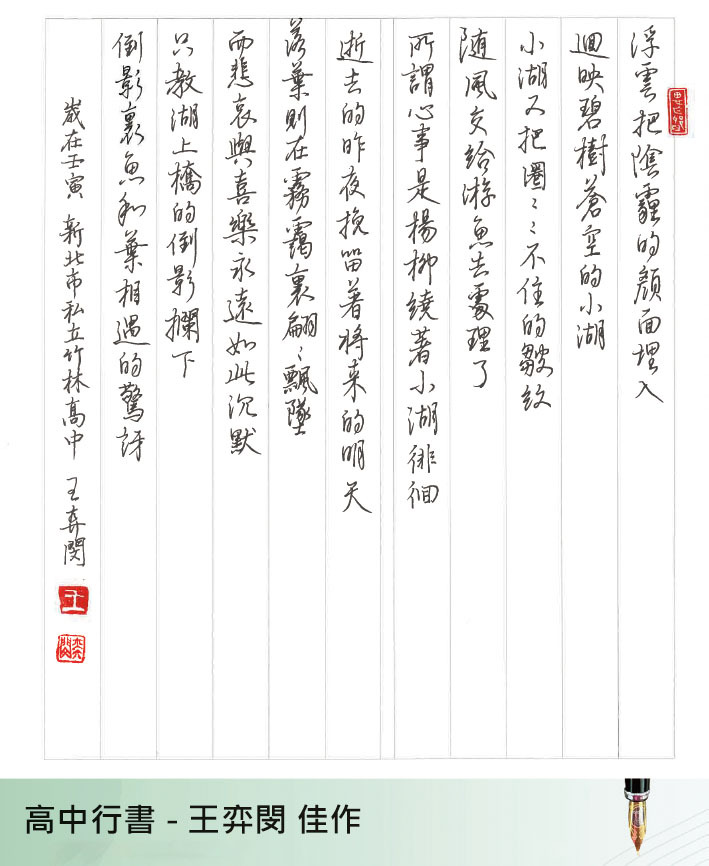 浮雲把陰霾的顏面埋入
迴映碧樹蒼空的小湖
小湖又把圈〻不住的皺紋
随風交給游魚去處理了
所謂心事是楊柳繞著小湖徘徊
逝去的昨夜挽留著將来的明天
落葉則在霧靄裏翩〻飄墜
而悲哀與喜樂永遠如此沉默
只教湖上橋的倒影攔下
倒影裏魚和葉相遇的驚訝
歲在壬寅 新北市私立竹林高中 王弈閔
王
弈閔
高中行書 - 王弈閔 佳作